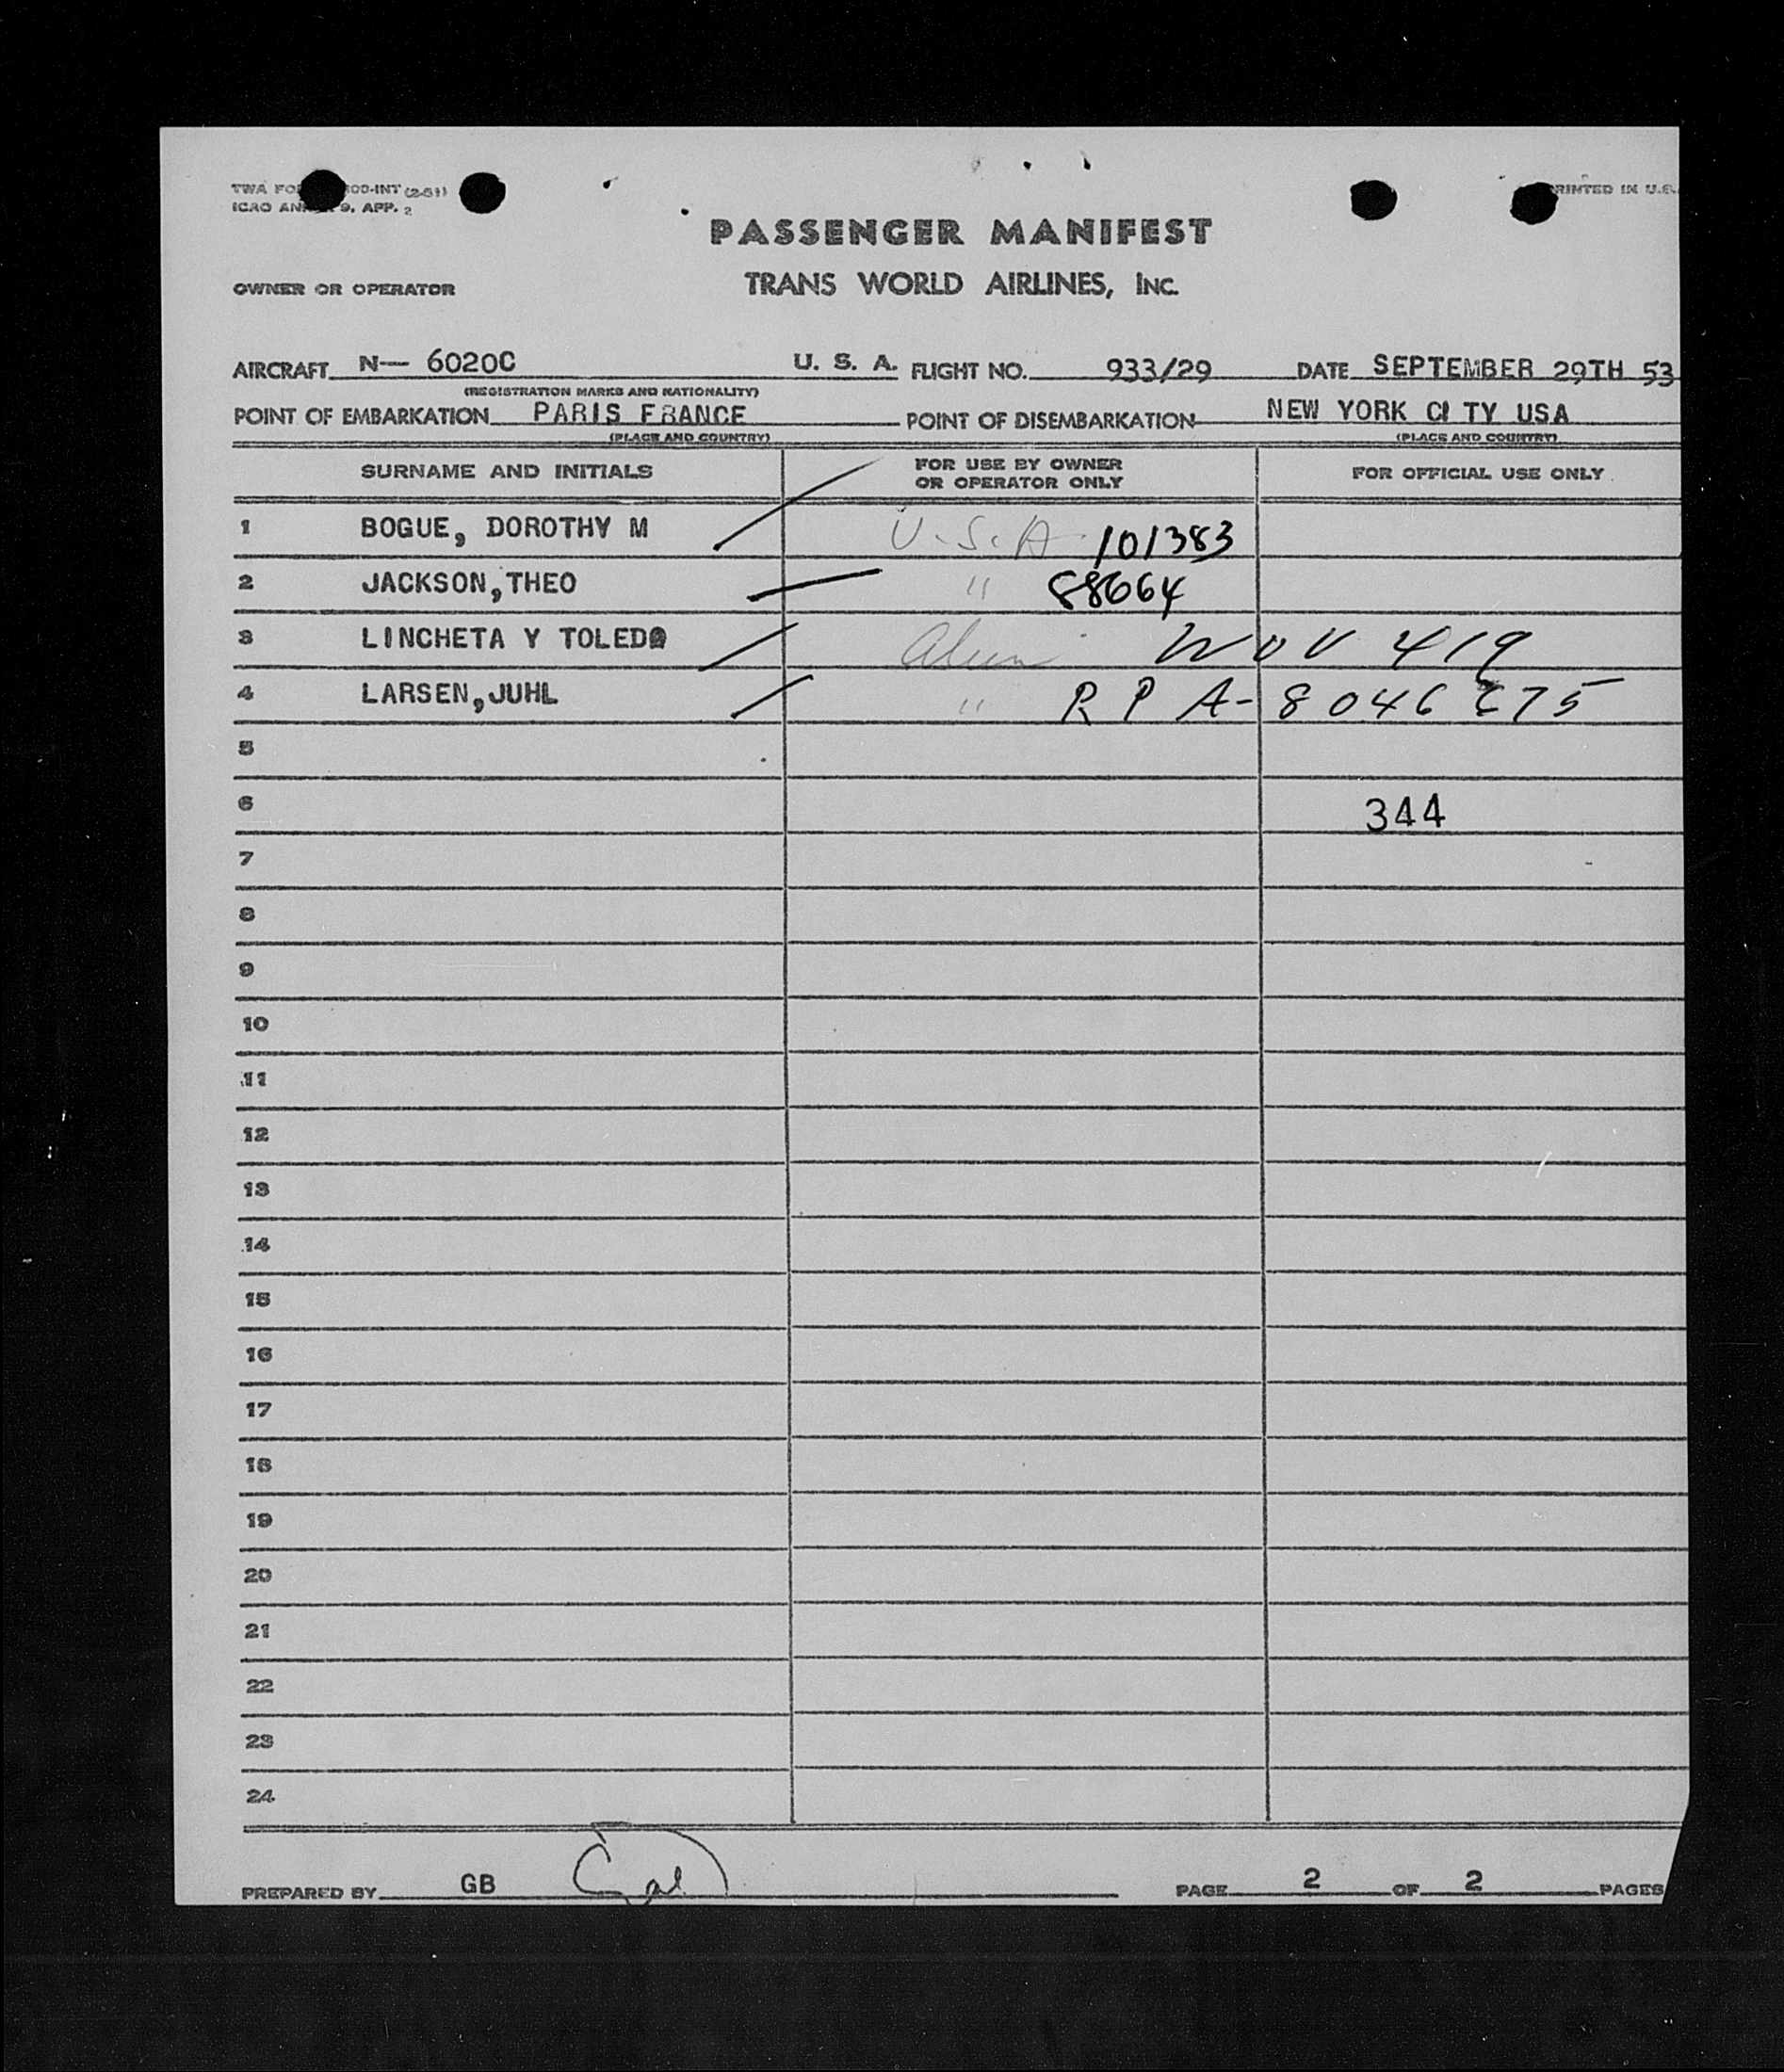 TWA FO 00-INT (2-51)
ICAO AN 9, APP. 2
PRINTED IN U.S.
PASSENGER MANIFEST
OWNER OR OPERATOR TRANS WORLD AIRLINES, INC.
AIRCRAFT N— 6020C U. S. A. FLIGHT NO. 933/29 DATE SEPTEMBER 29TH 53
(REGISTRATION MARKS AND NATIONALITY)
POINT OF EMBARKATION PARIS FRANCE POINT OF DISEMBARKATION NEW YORK CI TY USA
(PLACE AND COUNTRY) (PLACE AND COUNTRY)
SURNAME AND INITIALS FOR USE BY OWNER OR OPERATOR ONLY FOR OFFICIAL USE ONLY
1 BOGUE, DOROTHY M U.S.A. 101383
2 JACKSON,THEO " 88664
3 LINCHETA Y TOLEDO Alien 419
4 LARSEN,JUHL " R P A-8046675
5
6 344
7
8
9
10
11
12
13
14
15
16
17
18
19
20
21
22
23
24
PREPARED BY GB PAGE 2 OF 2 PAGES